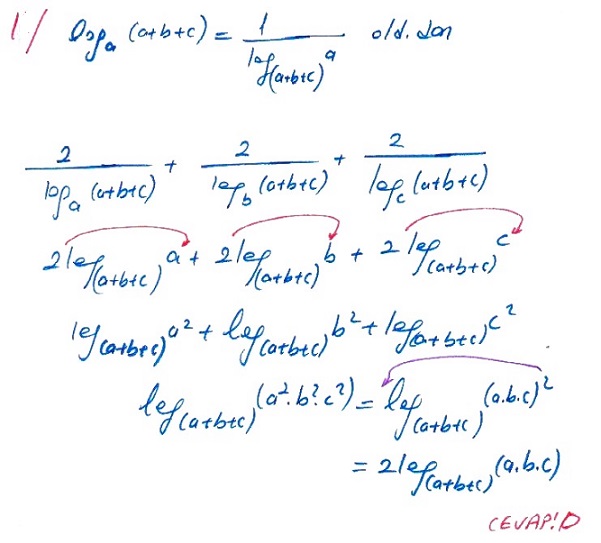 1/ log_a (a+b+c) = 1 / log_(a+b+c) a old. dan
2 / log_a (a+b+c) + 2 / log_b (a+b+c) + 2 / log_c (a+b+c)
2log_(a+b+c) a + 2log_(a+b+c) b + 2log_(a+b+c) c
log_(a+b+c) a² + log_(a+b+c) b² + log_(a+b+c) c²
log_(a+b+c) (a².b².c²) = log_(a+b+c) (a.b.c)²
= 2log_(a+b+c) (a.b.c)
CEVAP!D